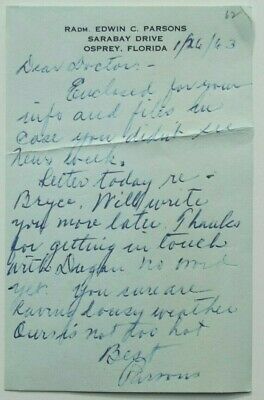 62
RADM. EDWIN C. PARSONS
SARABAY DRIVE
OSPREY, FLORIDA
1/26/63
Dear Doctor -
Enclosed for your
info and files in
case you didn't see
News Week.
Letter today re -
Bryce. Will write
you more later. Thanks
for getting in touch
with Dugan no word
yet. You sure are
having lousy weather
Ours is not too hot
Best
Parsons